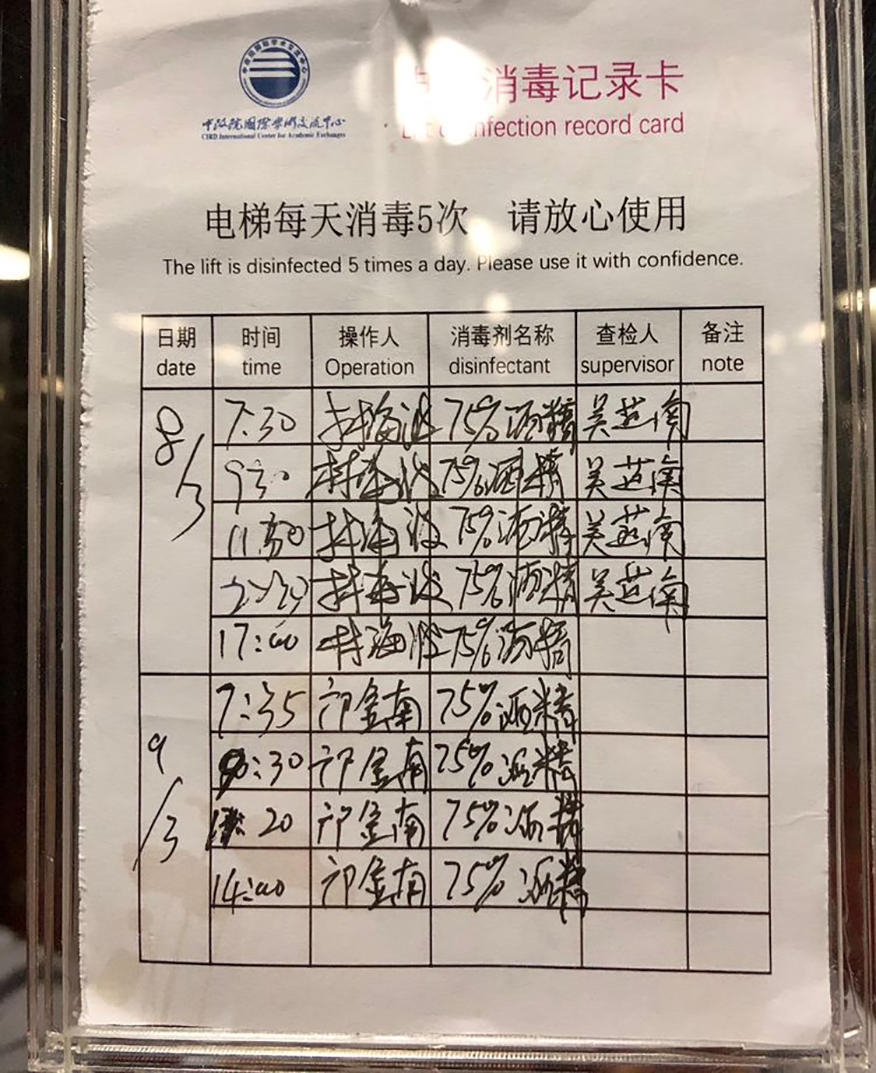 中改院国际学术交流中心
CIRD International Center for Academic Exchanges
消毒记录卡
Lift disinfection record card
电梯每天消毒5次 请放心使用
The lift is disinfected 5 times a day. Please use it with confidence.
日期 时间 操作人 消毒剂名称 查检人 备注
date time Operation disinfectant supervisor note
8/3 7:30 林海波 75%酒精 吴芷南
9:30 林海波 75%酒精 吴芷南
11:30 林海波 75%酒精 吴芷南
林海波 75%酒精 吴芷南
17:40 林海波 75%酒精
9/3 7:35 邝金南 75%酒精
9:30 邝金南 75%酒精
20 邝金南 75%酒精
14:40 邝金南 75%酒精